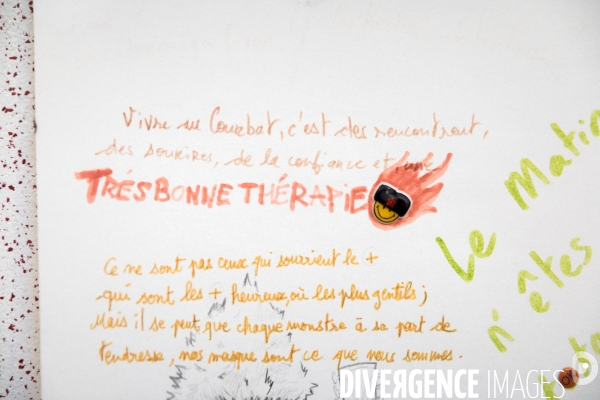 Vivre au Courbat, c'est des rencontront,
des sourires, de la confiance et, une
TRÉS BONNE THÉRAPIE
Ce ne sont pas ceux qui sourient le +
qui sont les + heureux, où les plus gentils ;
Mais il se peut, que chaque monstre à sa part de
tendresse, nos masque sont ce que nous sommes.
Le Matin
n'êtes
n'
DIVERGENCE IMAGES